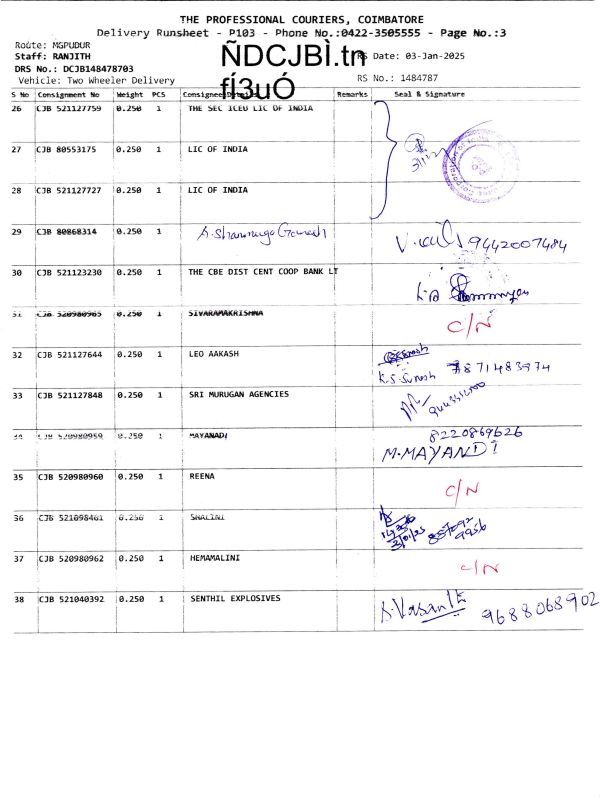 THE PROFESSIONAL COURIERS, COIMBATORE
Delivery Runsheet - P103 - Phone No.:0422-3505555 - Page No.:3
Route: MGPUDUR
ÑDCJBÌ.tn
Staff: RANJITH
Date: 03-Jan-2025
DRS No.: DCJB148478703
fÍ3uÓ
Vehicle: Two Wheeler Delivery
RS No.: 1484787
S No Consignment No Weight PCS Consignee Details Remarks Seal & Signature
26 CJB 521127759 0.250 1 THE SEC ICEU LIC OF INDIA
27 CJB 80553175 0.250 1 LIC OF INDIA
28 CJB 521127727 0.250 1 LIC OF INDIA
29 CJB 80868314 0.250 1 9442007484
30 CJB 521123230 0.250 1 THE CBE DIST CENT COOP BANK LT
31 CJB 520980965 0.250 1 SIVARAMAKRISHNA C/N
32 CJB 521127644 0.250 1 LEO AAKASH K.S. Suresh 7871483974
33 CJB 521127848 0.250 1 SRI MURUGAN AGENCIES
34 CJB 520980959 0.250 1 MAYANADI 8220869626
M.MAYANDI
35 CJB 520980960 0.250 1 REENA C/N
36 CJB 521098461 0.250 1 SHALINI
37 CJB 520980962 0.250 1 HEMAMALINI C/N
38 CJB 521040392 0.250 1 SENTHIL EXPLOSIVES 9688068902